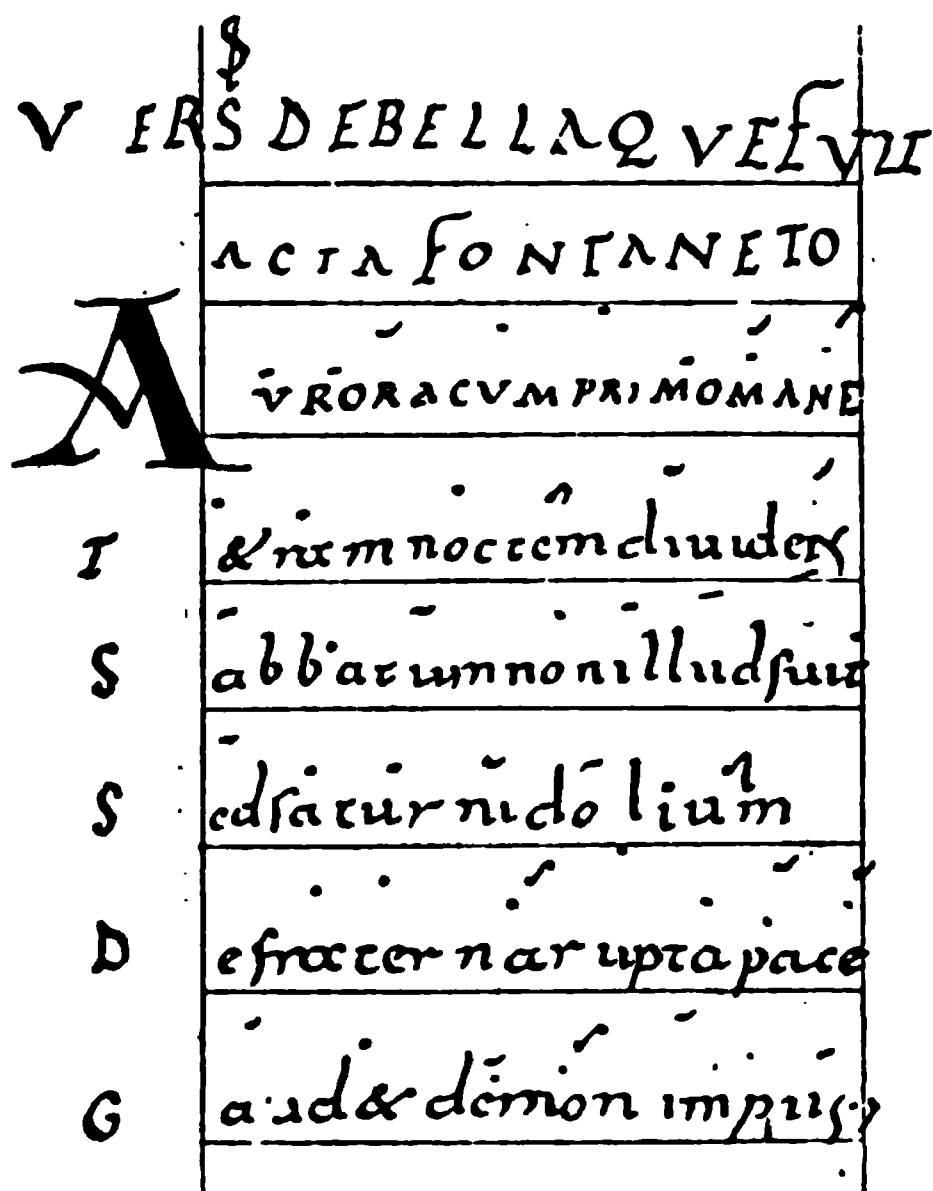 VERS DE BELLA QVE FVIT
ACTA FONTANETO
AVRORA CVM PRIMO MANE
T&ram noctem diuidens
Sabbatum non illud fuit
Sed saturni dolium
De fraterna rupta pace
Gaud& demon impius